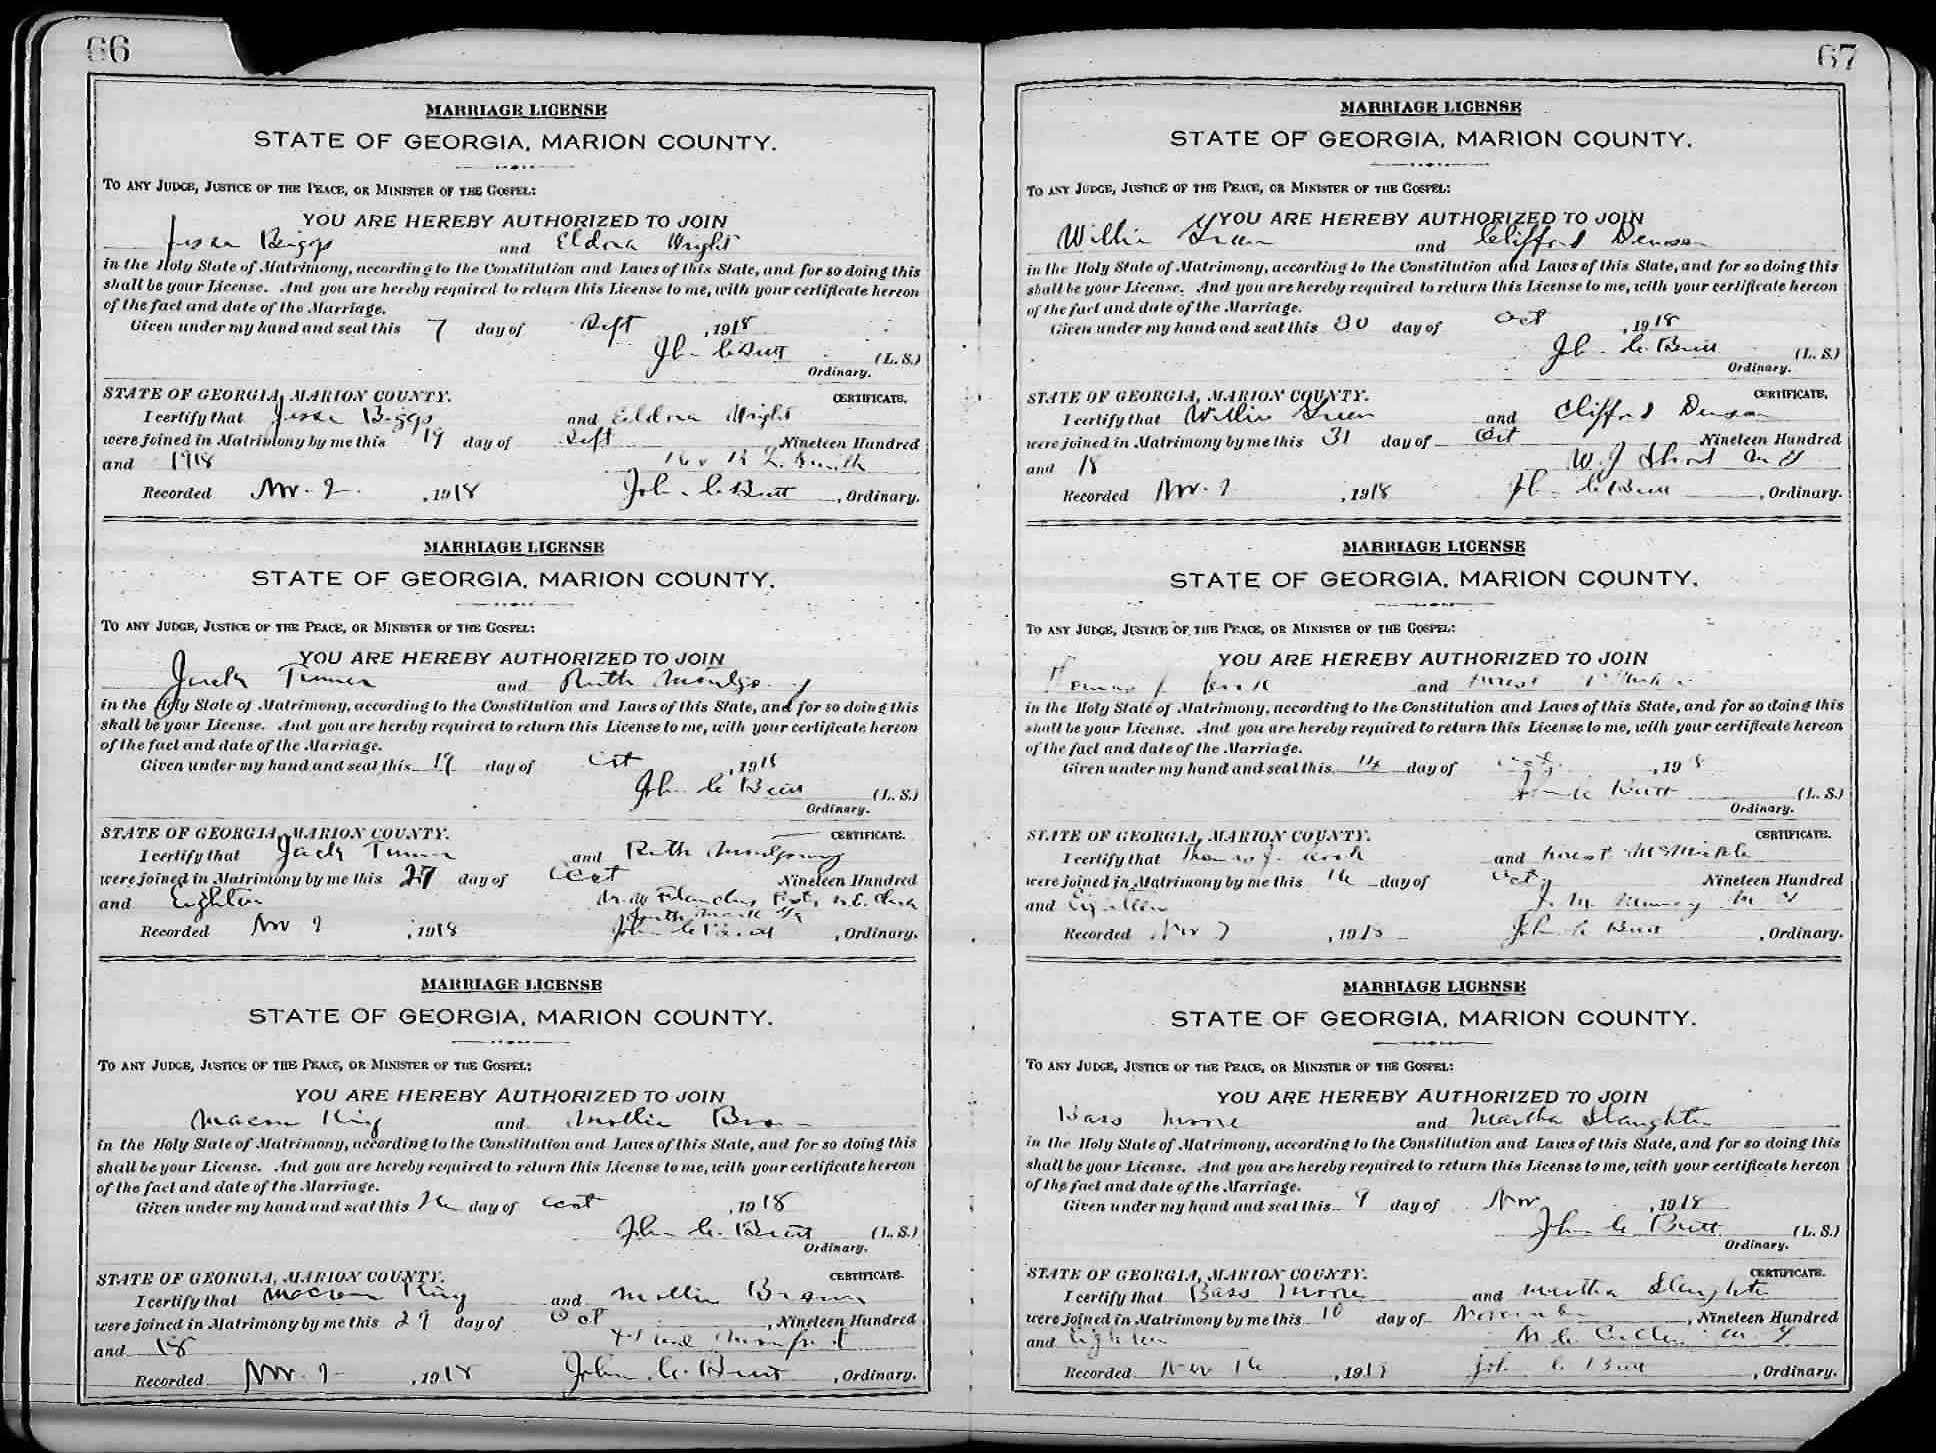 66
MARRIAGE LICENSE
STATE OF GEORGIA, MARION COUNTY.
TO ANY JUDGE, JUSTICE OF THE PEACE, OR MINISTER OF THE GOSPEL:
YOU ARE HEREBY AUTHORIZED TO JOIN
Jesse Biggs and Eldora Wright
in the Holy State of Matrimony, according to the Constitution and Laws of this State, and for so doing this
shall be your License. And you are hereby required to return this License to me, with your certificate hereon
of the fact and date of the Marriage.
Given under my hand and seal this 7 day of Sept, 1918
John C Butt (L. S.)
Ordinary.
STATE OF GEORGIA, MARION COUNTY. CERTIFICATE.
I certify that Jesse Biggs and Eldora Wright
were joined in Matrimony by me this 19 day of Sept, Nineteen Hundred
and 1918 Rev R L Smith
Recorded Nov. 2, 1918 John C Butt, Ordinary.
MARRIAGE LICENSE
STATE OF GEORGIA, MARION COUNTY.
TO ANY JUDGE, JUSTICE OF THE PEACE, OR MINISTER OF THE GOSPEL:
YOU ARE HEREBY AUTHORIZED TO JOIN
Jack Turner and Ruth
in the Holy State of Matrimony, according to the Constitution and Laws of this State, and for so doing this
shall be your License. And you are hereby required to return this License to me, with your certificate hereon
of the fact and date of the Marriage.
Given under my hand and seal this 19 day of Oct, 1918
John C Butt (L. S.)
Ordinary.
STATE OF GEORGIA, MARION COUNTY. CERTIFICATE.
I certify that Jack Turner and Ruth Montgomery
were joined in Matrimony by me this 27 day of Oct Nineteen Hundred
and Eighteen
Recorded Nov 2, 1918 John C Butt, Ordinary.
MARRIAGE LICENSE
STATE OF GEORGIA, MARION COUNTY.
TO ANY JUDGE, JUSTICE OF THE PEACE, OR MINISTER OF THE GOSPEL:
YOU ARE HEREBY AUTHORIZED TO JOIN
Macon King and Mollie Brown
in the Holy State of Matrimony, according to the Constitution and Laws of this State, and for so doing this
shall be your License. And you are hereby required to return this License to me, with your certificate hereon
of the fact and date of the Marriage.
Given under my hand and seal this 26 day of Oct, 1918
John C. Butt (L. S.)
Ordinary.
STATE OF GEORGIA, MARION COUNTY. CERTIFICATE.
I certify that Macon King and Mollie Brown
were joined in Matrimony by me this 29 day of Oct, Nineteen Hundred
and 18
Recorded Nov. 2, 1918 John C. Butt, Ordinary.
67
MARRIAGE LICENSE
STATE OF GEORGIA, MARION COUNTY.
TO ANY JUDGE, JUSTICE OF THE PEACE, OR MINISTER OF THE GOSPEL:
YOU ARE HEREBY AUTHORIZED TO JOIN
Willie Green and Clifford Denson
in the Holy State of Matrimony, according to the Constitution and Laws of this State, and for so doing this
shall be your License. And you are hereby required to return this License to me, with your certificate hereon
of the fact and date of the Marriage.
Given under my hand and seal this 30 day of Oct, 1918
John C. Butt (L. S.)
Ordinary.
STATE OF GEORGIA, MARION COUNTY. CERTIFICATE.
I certify that Willie Green and Clifford Denson
were joined in Matrimony by me this 31 day of Oct Nineteen Hundred
and 18 W. J Short M G
Recorded Nov. 2, 1918 John C Butt, Ordinary.
MARRIAGE LICENSE
STATE OF GEORGIA, MARION COUNTY.
TO ANY JUDGE, JUSTICE OF THE PEACE, OR MINISTER OF THE GOSPEL:
YOU ARE HEREBY AUTHORIZED TO JOIN
Thomas J. and
in the Holy State of Matrimony, according to the Constitution and Laws of this State, and for so doing this
shall be your License. And you are hereby required to return this License to me, with your certificate hereon
of the fact and date of the Marriage.
Given under my hand and seal this 14 day of Oct, 1918
John C Butt (L. S.)
Ordinary.
STATE OF GEORGIA, MARION COUNTY. CERTIFICATE.
I certify that Thomas J. Cook and McMickle
were joined in Matrimony by me this day of Oct Nineteen Hundred
and Eighteen J. M. M G
Recorded Nov 2, 1918 John C Butt, Ordinary.
MARRIAGE LICENSE
STATE OF GEORGIA, MARION COUNTY.
TO ANY JUDGE, JUSTICE OF THE PEACE, OR MINISTER OF THE GOSPEL:
YOU ARE HEREBY AUTHORIZED TO JOIN
Bass Moore and Martha Slaughter
in the Holy State of Matrimony, according to the Constitution and Laws of this State, and for so doing this
shall be your License. And you are hereby required to return this License to me, with your certificate hereon
of the fact and date of the Marriage.
Given under my hand and seal this 9 day of Nov, 1918
John C Butt (L. S.)
Ordinary.
STATE OF GEORGIA, MARION COUNTY. CERTIFICATE.
I certify that Bass Moore and Martha Slaughter
were joined in Matrimony by me this 10 day of November, Nineteen Hundred
and Eighteen
Recorded Nov 16, 1918 John C Butt, Ordinary.